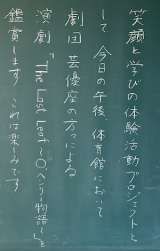 笑顔と学びの体験活動プロジェクトと
して 今日の午後 体育館において
劇団 芸優座の方々による
演劇『The Last Leaf O・ヘンリ物語』を
鑑賞します これは楽しみです